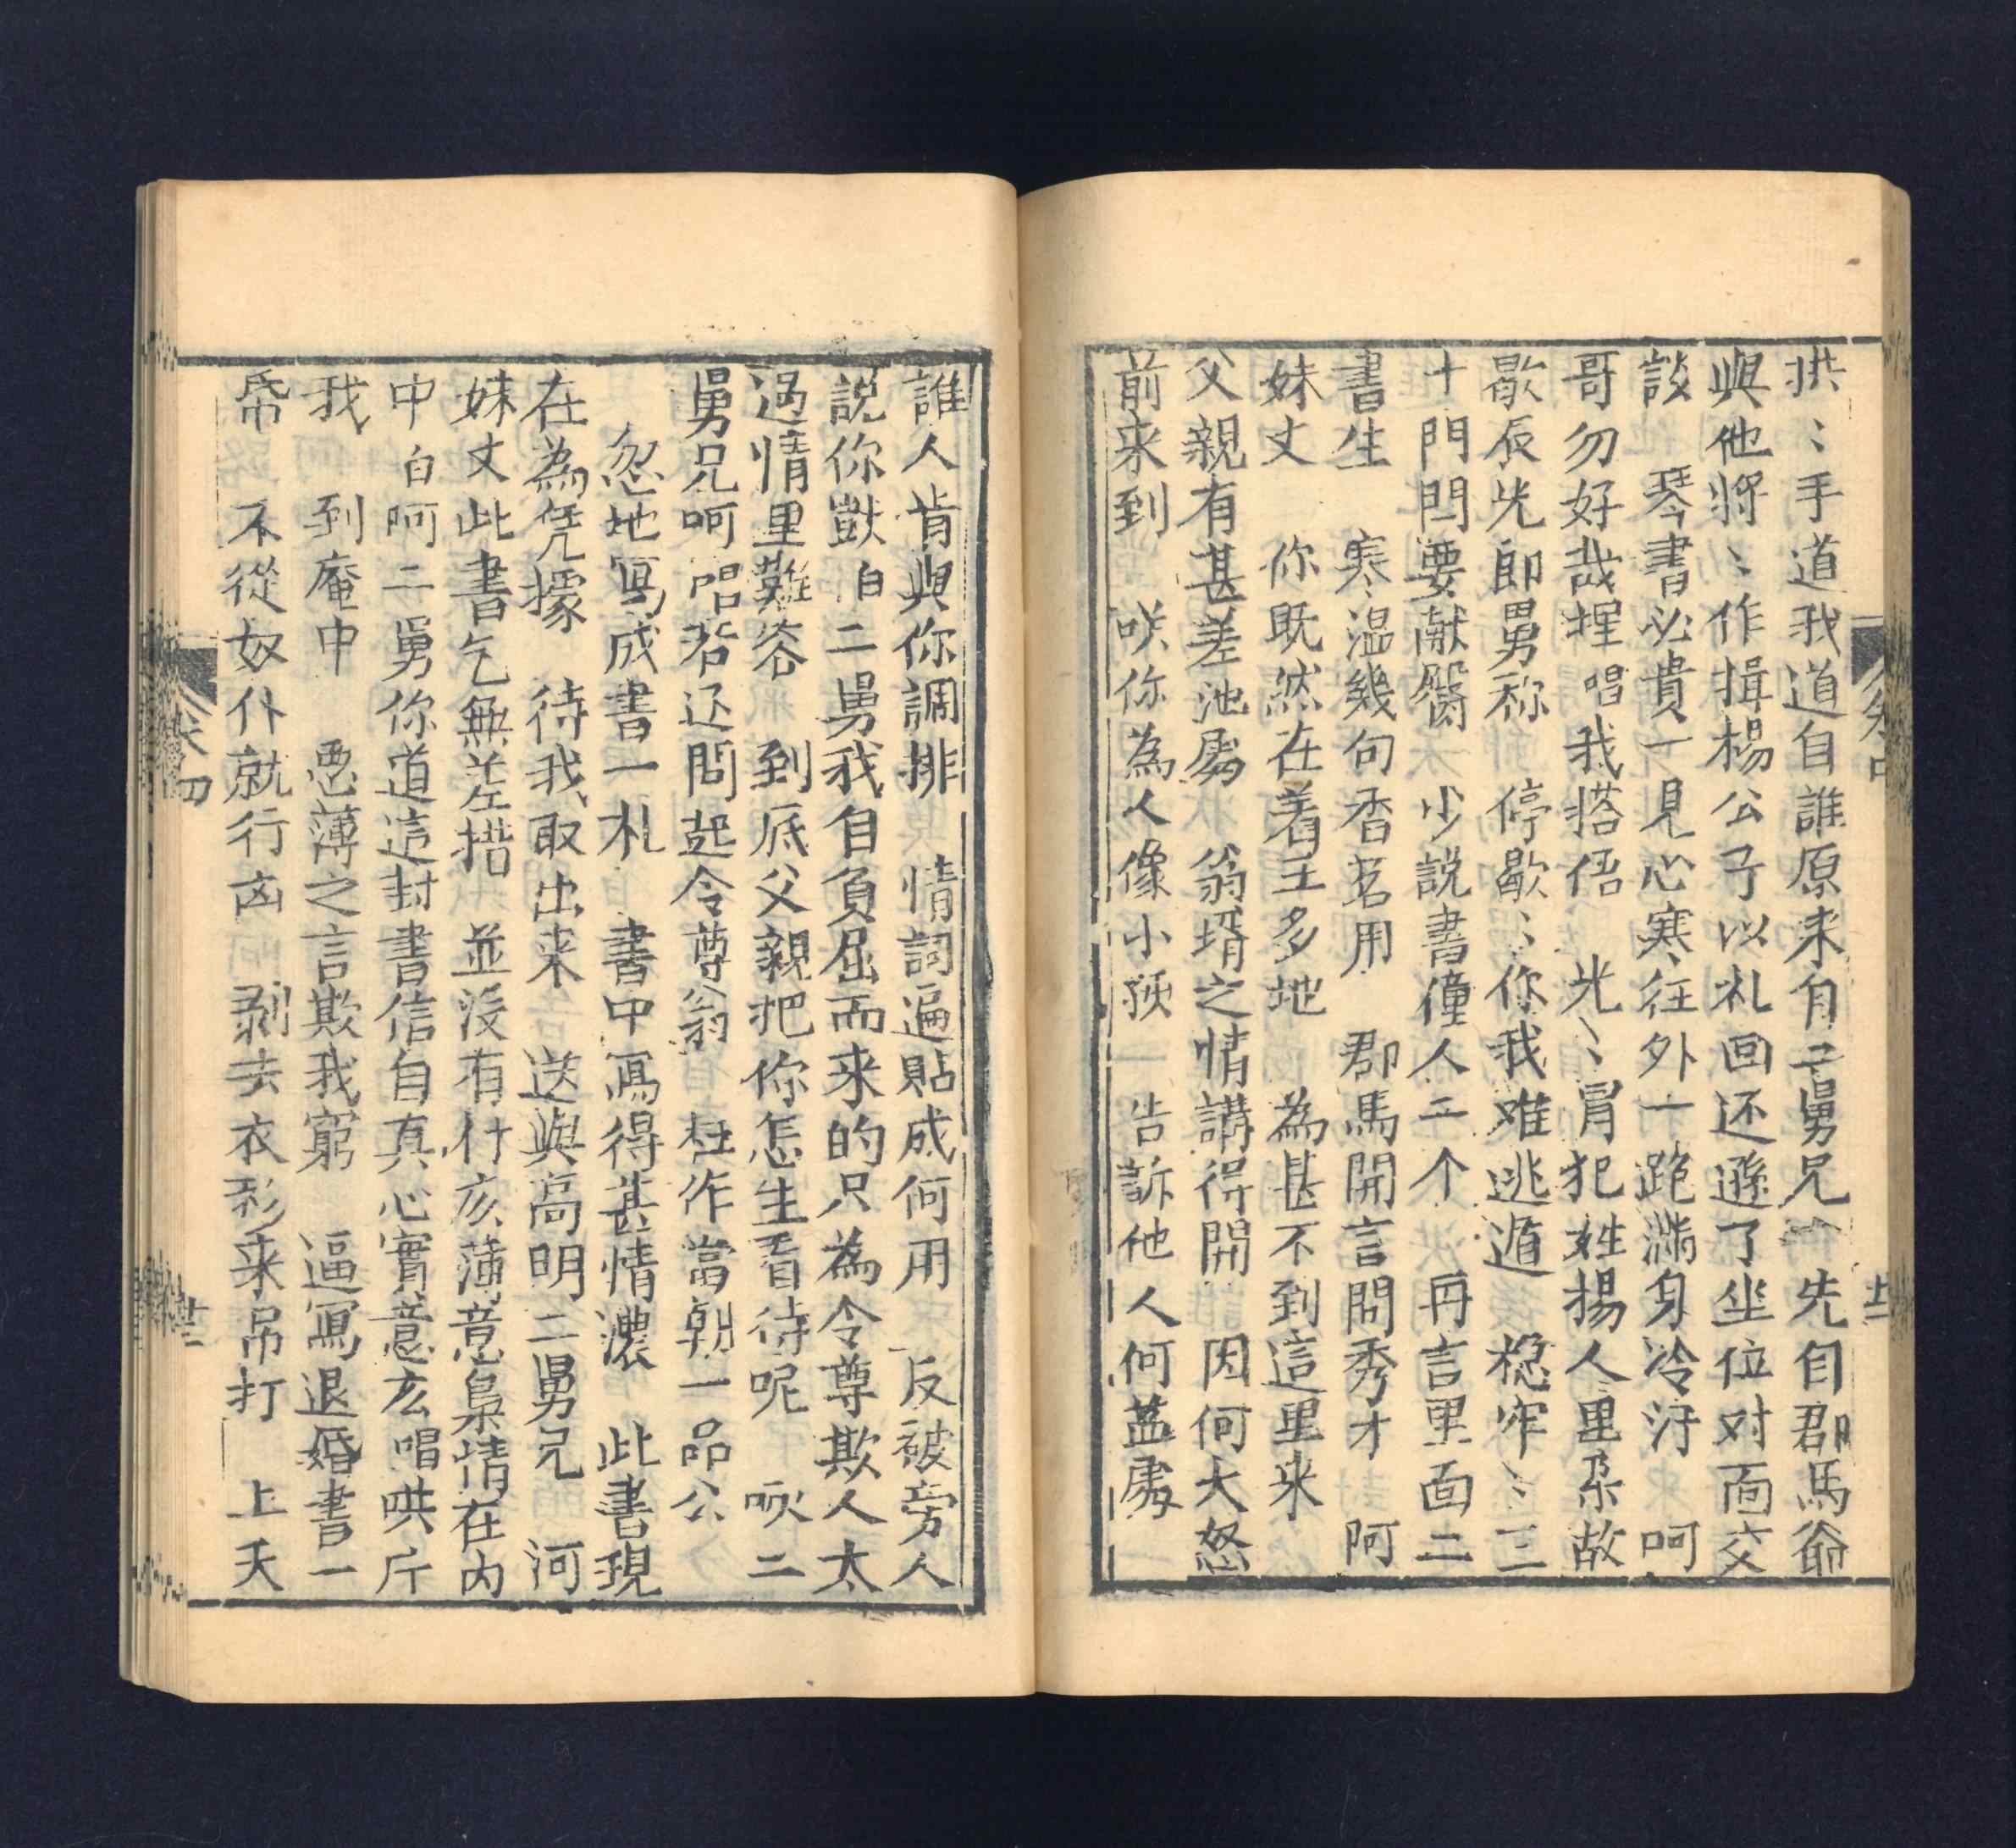 拱〻手道我道自誰原来自二舅兄 先自郡馬爺
與他將〻作揖楊公子以礼回还遜了坐位对面交
談 琴書必貴一見心寒往外一跑滿身冷汗 呵
哥勿好哉捏唱我搭俉 光〻冐犯姓揚人里朶故
歇辰光郎男称 停歇〻你我难逃遁 稳牢〻三
十門閂要献臀 少説書僮人二个 再言里面二
書生 寒温幾句香茗用 郡馬開言問秀才 阿
妹丈 你既然在着王多地 為甚不到這里来
父親有甚差池處 翁壻之情講得開 因何大怒
前来到 唉你為人像小孩 告訴他人何益處
卷四
誰人肯與你調排 情詞遍貼成何用 反被旁人
説你獃白二舅我自負屈而来的只為令尊欺人太
過情里難容 到底父親把你怎生看待呢 唉二
舅兄呵唱若还問起令尊翁 枉作當朝一品公
忽地寫成書一札 書中寫得甚情濃 此書現
在為凭據 待我取出来 送與高明二舅兄 河
妹丈此書乞無差措 並没有行亥薄意梟情在内
中白阿二舅你道這封書信自真心實意広唱哄斤
我 到庵中 惡薄之言欺我窮 逼寫退婚書一
帋 不從奴仆就行凶 剥去衣衫来吊打 上天
卷四